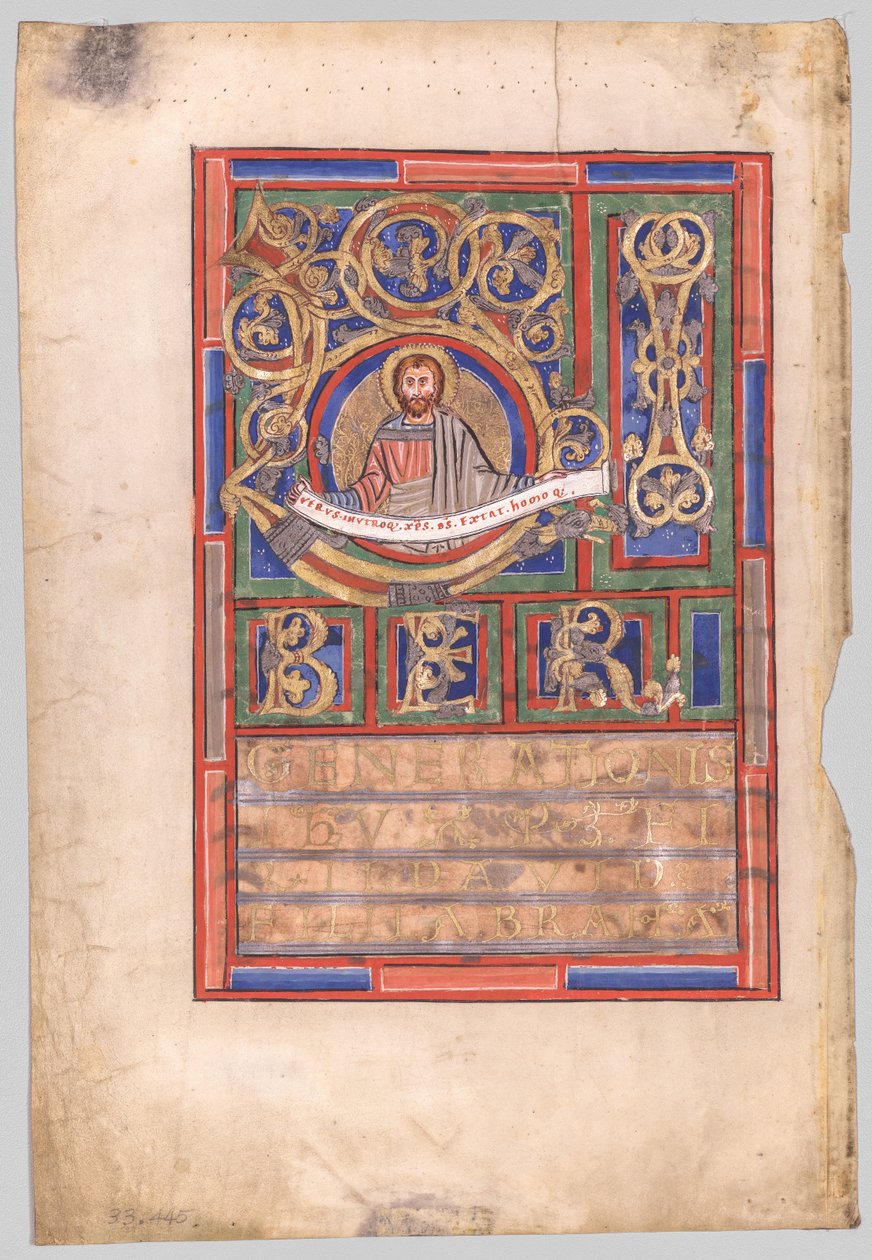 LI
VERVS. INVTROQ. XPS. DS. EXTAT. homo Q;
BER
GENERATIONIS
IHV. XPI. FI
LII DAVID.
FILII ABRAHA
33.445